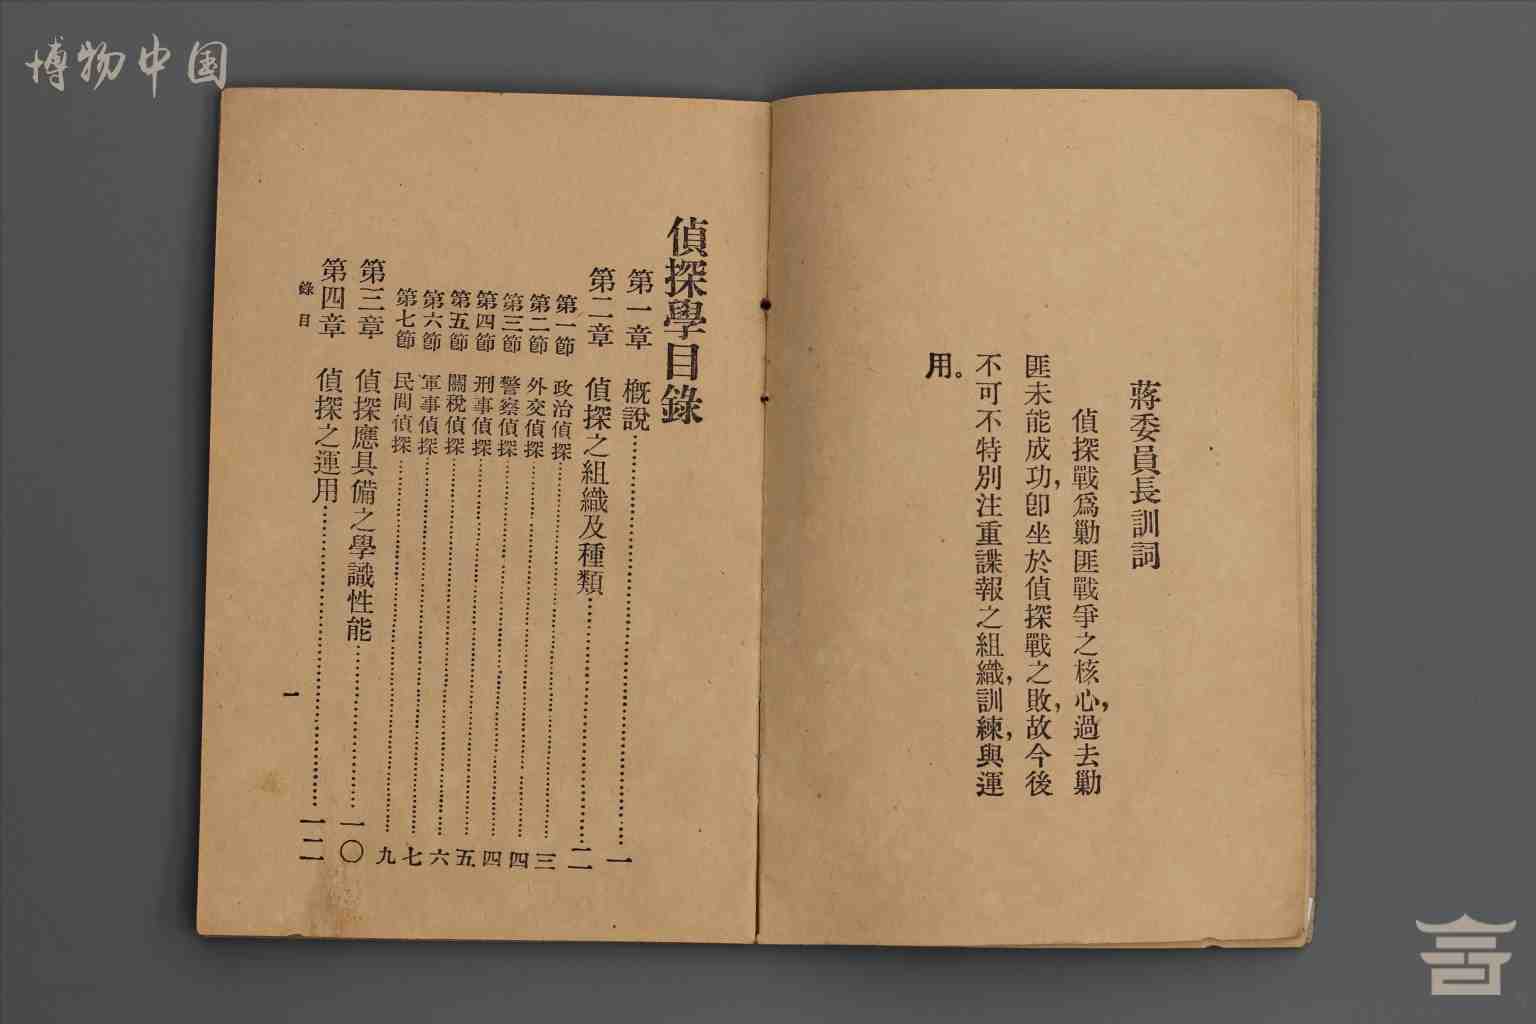 博物中国
蔣委員長訓詞
偵探戰爲勦匪戰爭之核心，過去勦
匪未能成功，卽坐於偵探戰之敗，故今後
不可不特別注重諜報之組織，訓練，與運
用。
偵探學目錄
第一章　概說……一
第二章　偵探之組織及種類……二
第一節　政治偵探……三
第二節　外交偵探……四
第三節　警察偵探……四
第四節　刑事偵探……五
第五節　關稅偵探……六
第六節　軍事偵探……七
第七節　民間偵探……九
第三章　偵探應具備之學識性能……一〇
第四章　偵探之運用……一二
錄目
一